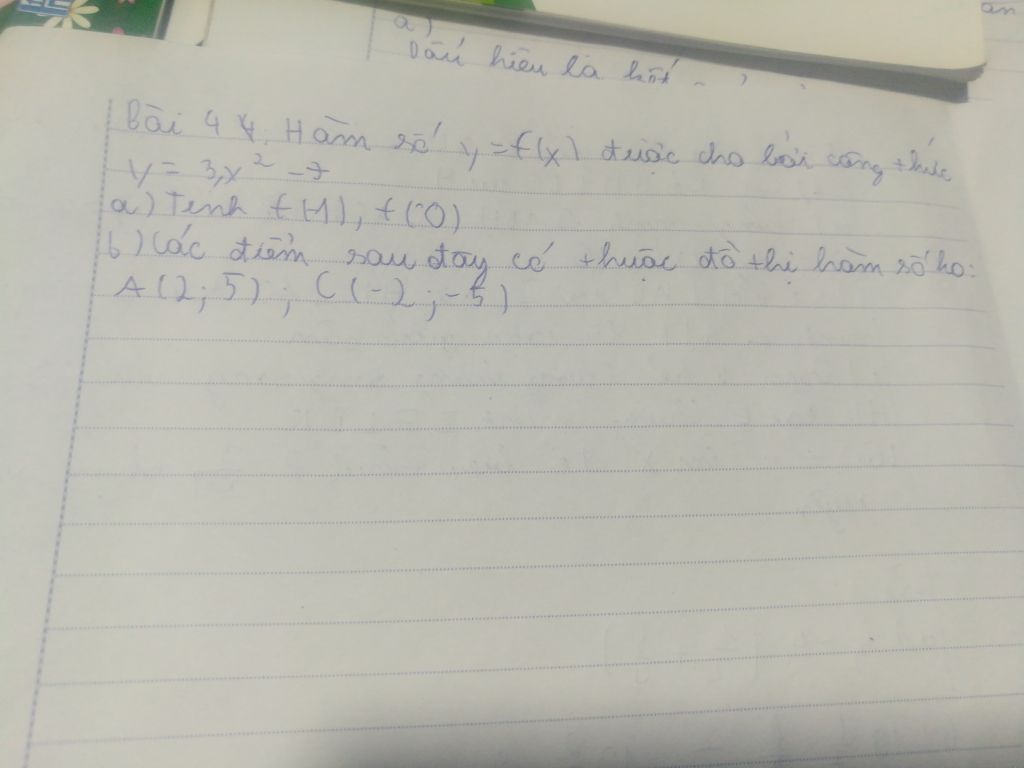 a)
Dấu hiệu là
Bài 4 : Hàm số y = f(x) được cho bởi công thức
y = 3x² - 7
a) Tính f(-1), f(0)
b) Các điểm sau đây có thuộc đồ thị hàm số ko:
A(2; 5) ; C(-2 ; -5)